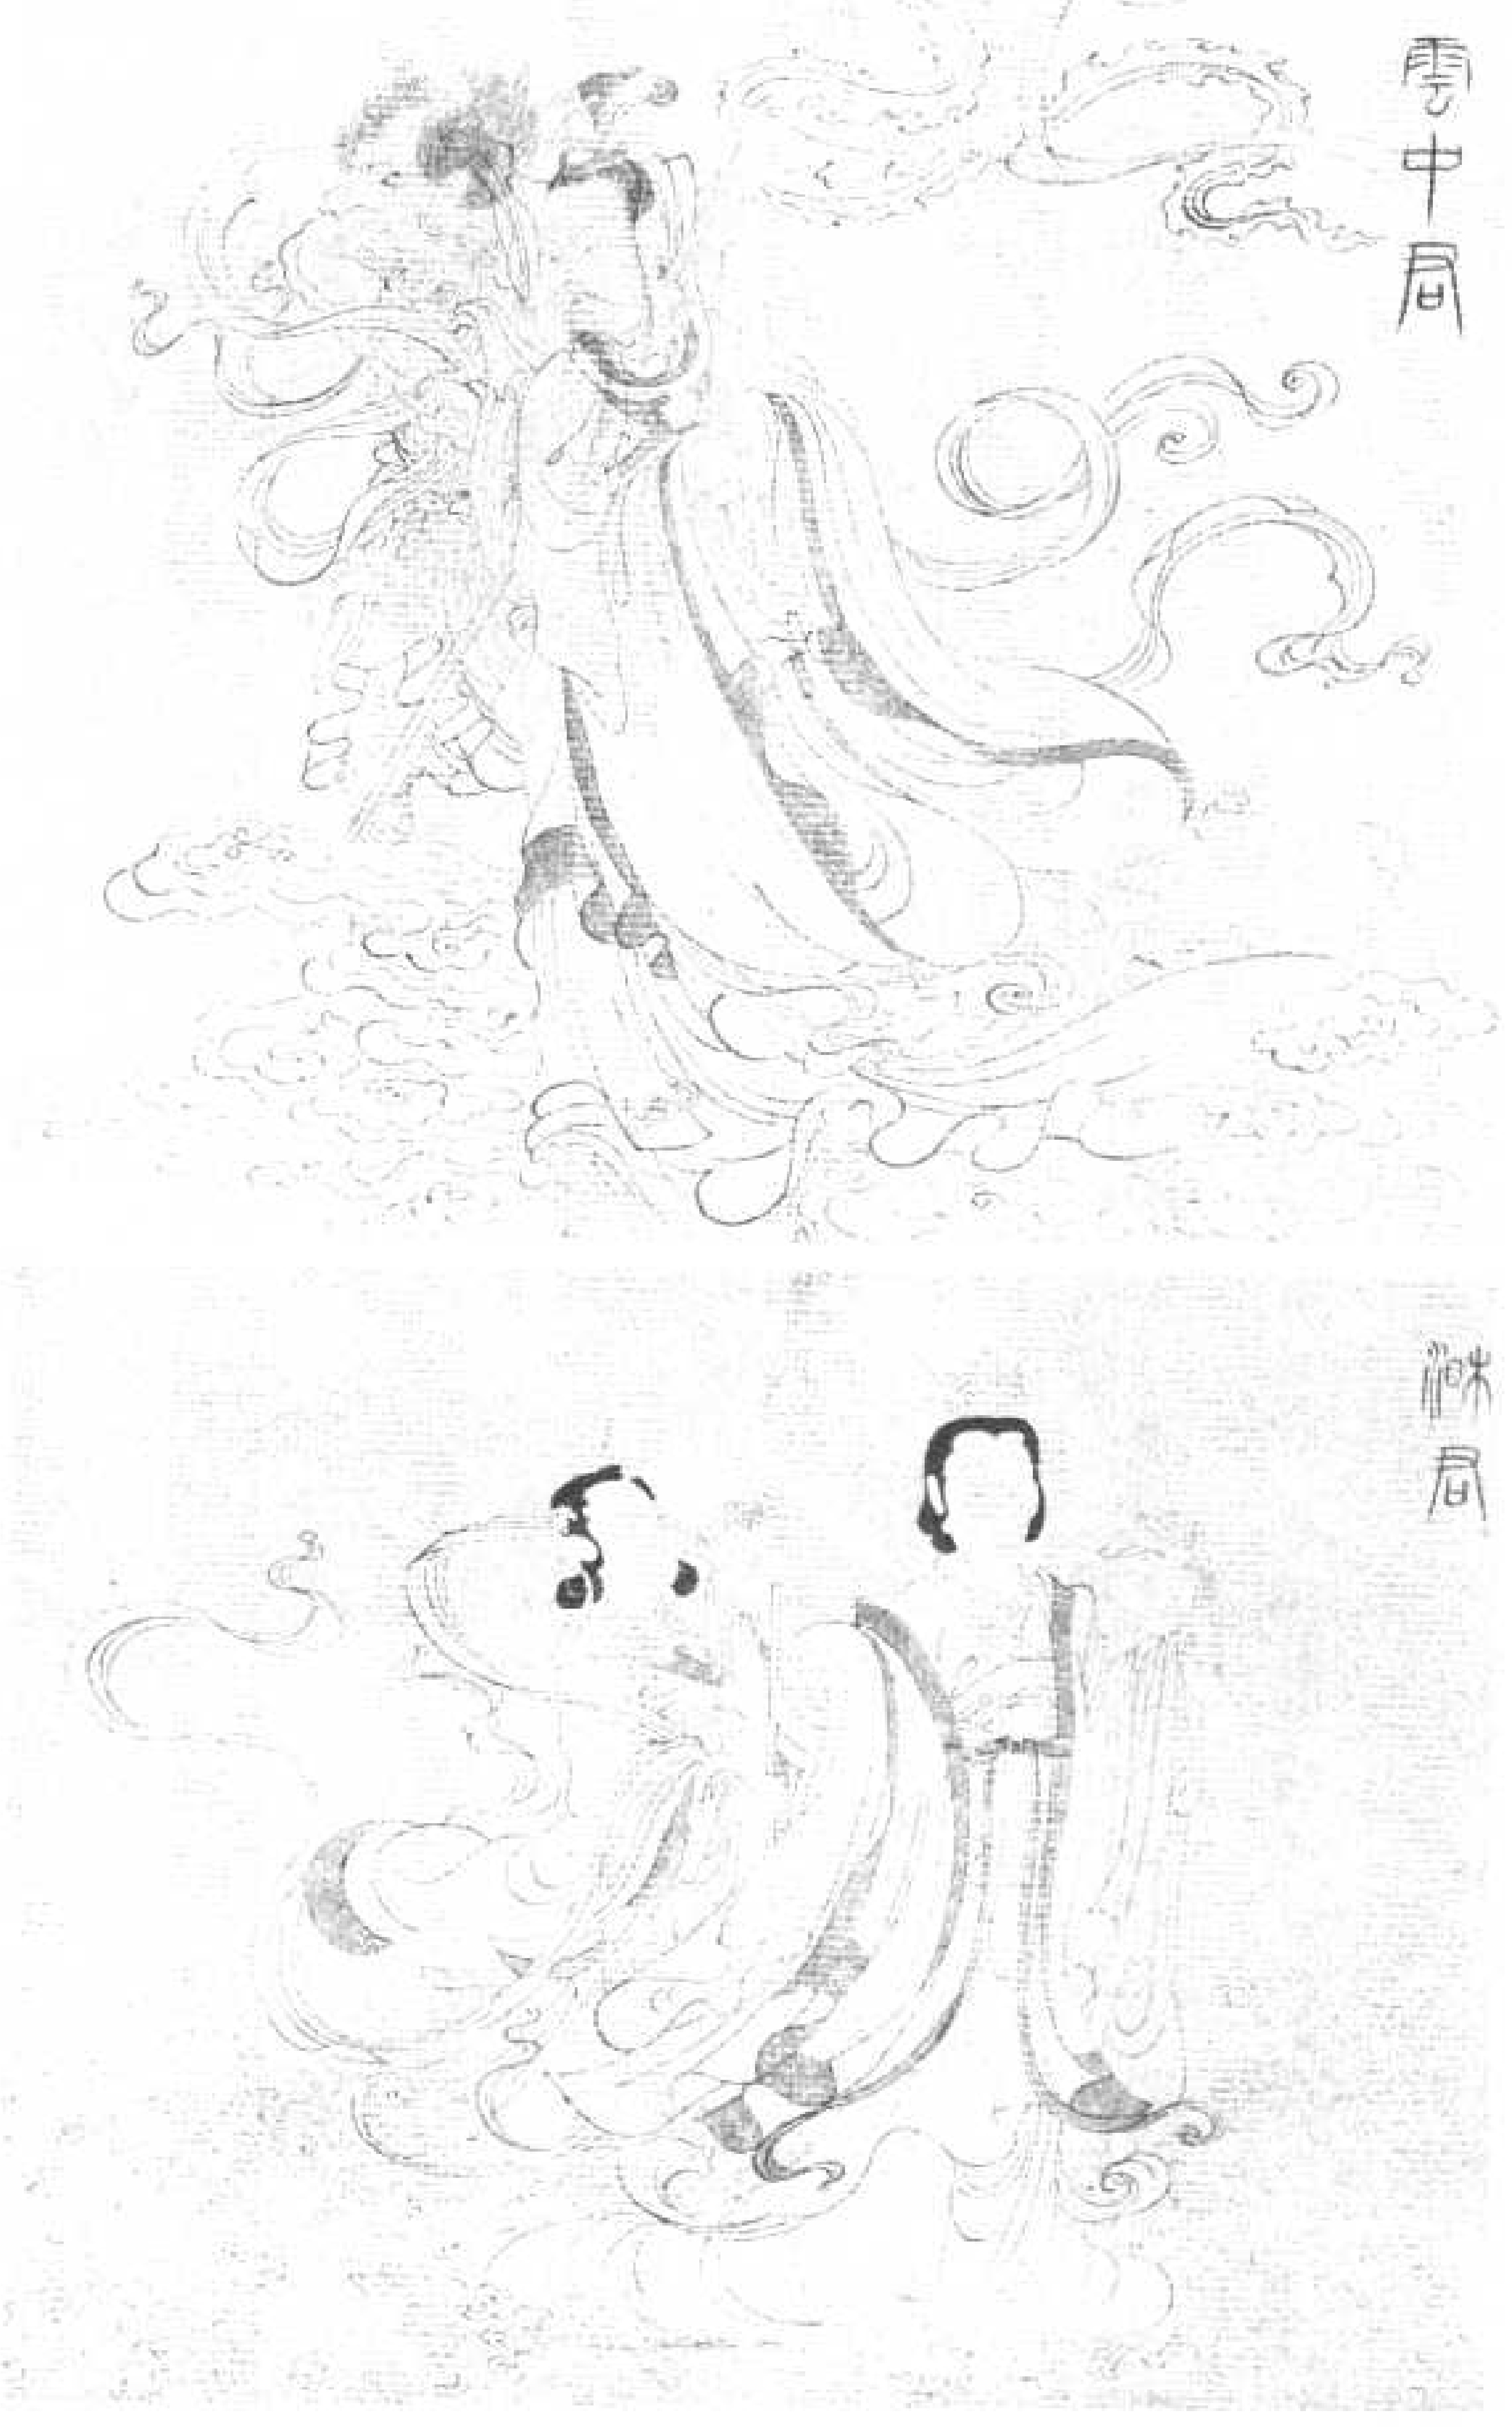 雲中君
湘君